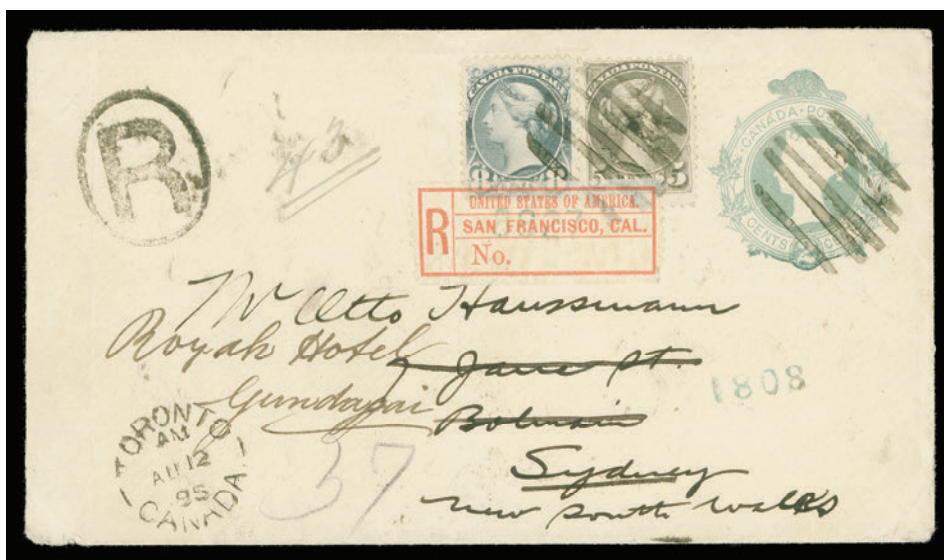 R
43
CANADA POSTAGE
8 8
CANADA POSTAGE
5 5
CANADA PO
CENTS
R
UNITED STATES OF AMERICA.
SAN FRANCISCO, CAL.
No.
Mr Otto Haussmann
Royal Hotel
Jane St.
Gundagai
Balmain
Sydney
New South Wales
1808
37
TORONTO
AM
AU 12
95
CANADA